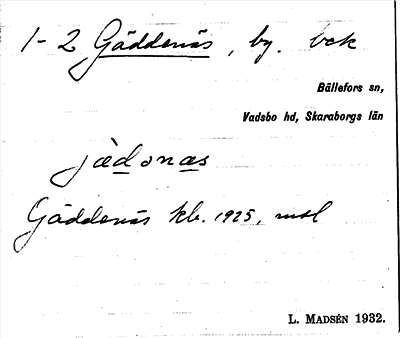 1-2 Gäddenäs, by. bck
Bällefors sn,
Vadsbo hd, Skaraborgs län
jèdənas
Gäddenäs kb. 1925, msl
L. MADSÉN 1932.